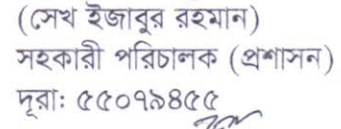 (সেখ ইজাবুর রহমান)
সহকারী পরিচালক (প্রশাসন)
দূরা: ৫৫০৭৯৪৫৫